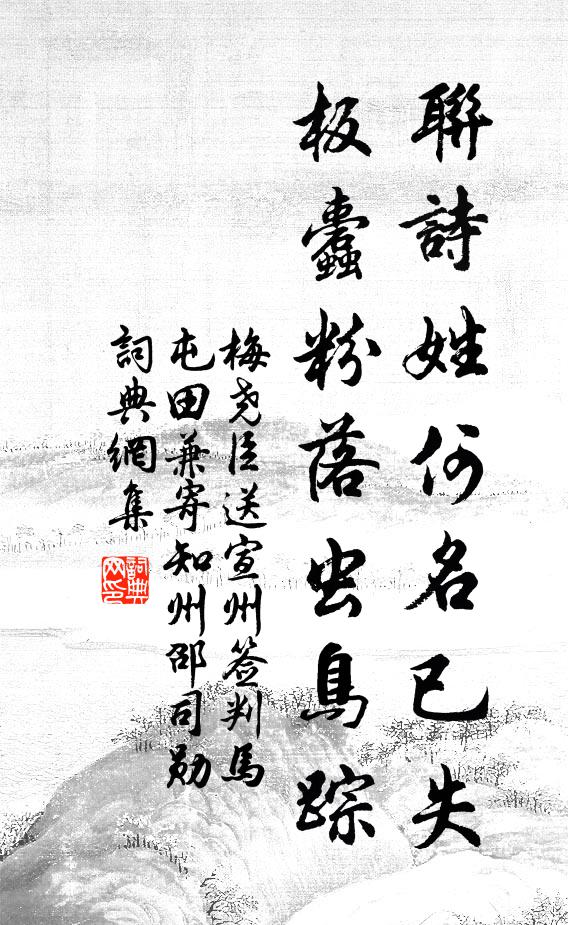 聯詩姓何名已失
板蠹粉落虫鳥踪
梅尧臣送宣州签判馬
屯田兼寄知州邵司勋
詞典網集
詞典
网印